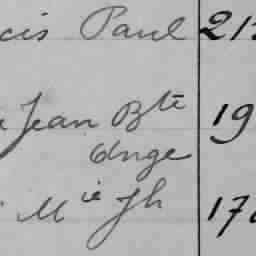 cis Paul 21
Jean Bte 19
Ange
Mie Jh 17